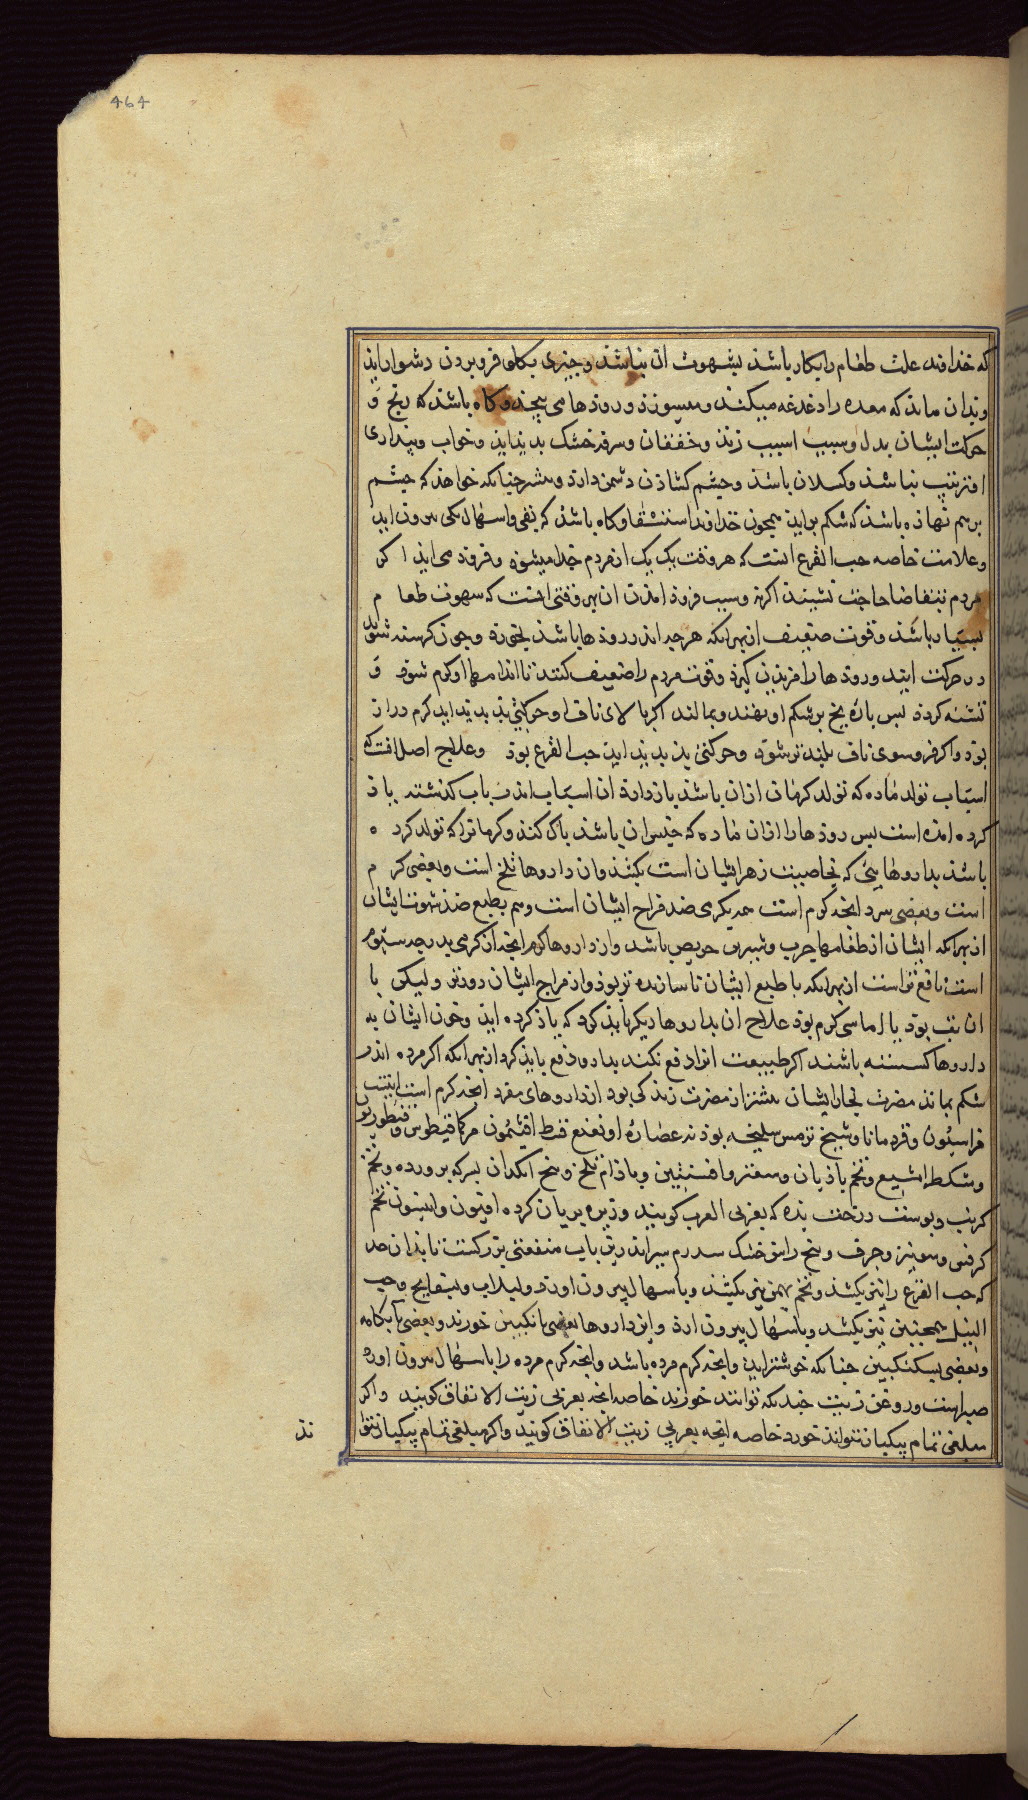 464
که خداوند علت طعام را بکار باشذ بشهوت آن نباشذ وچیزی بکلو فروبردن دشوار ایذ
وبدان ماند که معده را دغدغه میکند ومیسوزد وروذها می پیچد وگاه باشد که رنج و
حرکت ایشان بدل وسبب اسیب زند وخفقان وسرفه خشک بدیدایذ وخواب وبیداری
بترتیب نباشد وکسلان باشد وچشم کشادن دشمن دارد وبیشتر چنانکه خواهذ که چشم
برهم نهاده باشذ که شکم برایذ همچون خداوند استسقا وگاه باشذ که بقی واسهال بیرون اید
وعلامت خاصه حب القرع انست که هر وقت یک یک از مردم جدا میشود وفرود می ایذ اگر
مردم بتقاضا حاجت نشیند اگر نه وسبب فروذ امذن ان بهر وقتی انست که شهوت طعام
بسیار باشذ وقوت ضعیف از بهر انکه هرچه اندر روذها باشذ بخورد وچون گرسنه شود
در حرکت ایند وروذها را گزیدن گیرند وقوت مردم را ضعیف کنند تا اندامها او گرم شود و
تشنه گردد بس باره یخ بر شکم او نهند وبمالند اگر بالای ناف او حرکتی بدید اید کرم دراز
بوذ واگر فروسوی ناف بلندتر شود وحرکتی بدید ایذ حب القرع بوذ وعلاج اصل انست که
اسباب تولد ماده که تولد کرمان ازان باشذ بازدارد ان اسباب اندر باب گذشته یاذ
کرده امذه است بس روذها را ازان ماده که جنس ان باشذ پاک کند وکرمانرا که تولد کرده
باشذ بداروهایی که بخاصیت زهر ایشان است بکشد وان داروها تلخ است وبعضی گرم
است وبعضی سرد انچه گرم است هم بگرمی ضد مزاج ایشان است وهم بطبع ضد شهوت ایشان
از بهر انکه ایشان از طعامها چرب وشیرین حریص باشد واز داروها گرم انچه اندر گرمی بدرجه سیوم
است نافع تر است از بهر انکه با طبع ایشان ناسازنده تر بوذ واز مزاج ایشان دورتر ولیکن با
ان تب بوذ یا اماسی گرم بوذ علاج ان بداروها دیگر بایذ کرد که یاذ کرده ایذ وچون ایشان به
داروها کشته باشند اگر طبیعت انرا دفع نکند بدارو دفع بایذ کرد از بهر انکه اگر مرده اندر
شکم بماند مضرت بخار ایشان بیشتر از مضرت زندگی بود از داروهای مفرد انچه گرم است افسنتین
فراسیون وقردمانا وشیح ترمس سلیخه پودنه عصاره او نعنع قسط افتیمون کماقیطوس وقنطوریون
ومشکطرامشیع وتخم بادیان وسعتر وافسنتین وبادام تلخ وبیخ انگدان بسرکه پرورده وتخم
کرنب وپوست درخت تنده که بعربی الغرب گویند وزیره بریان کرده افتیمون وانیسون تخم
کرفس وصعتر وحرف وبیخ راسن خشک سه درم سیر اندرین باب منفعتی بزرگست تا بدان حد
که حب القرع را نیز بکشذ وتخم ترب نیز بکشد وباسهال بیرون اورد ولبلاب وبسفایج وحب
النیل همچنین نیز بکشد وباسهال بیرون ارذ واین داروها بعضی بانگبین خورند وبعضی بآبکامه
وبعضی بسکنگبین چنانکه خوشتر ایذ وانچه کرم مرده باشد وانچه کرم مرده را باسهال بیرون اورد
صبر است وروغن زیت چندانکه توانند خورند خاصه انچه بعربی زیت الانفاق گویند واگر
مبلغی تمام بیکبار نتوانند خورد خاصه انچه بعربی زیت الانفاق گویند واگر مبلغی تمام بیکبار نتوا
نذ